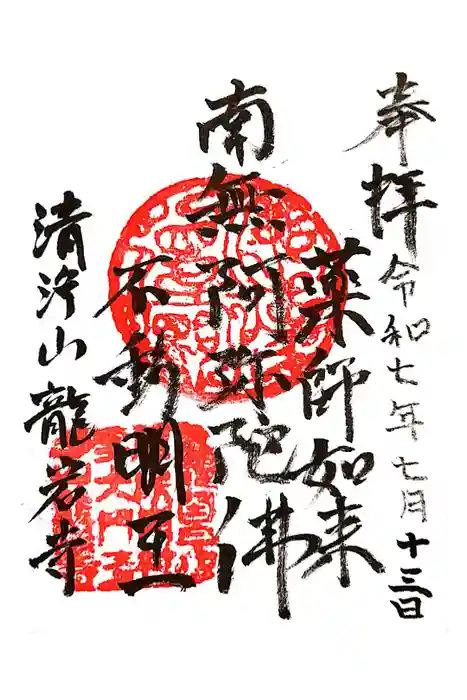 奉拝 令和七年七月十三日
薬師如来
南無阿弥陀佛
不動明王
清浄山龍岩寺